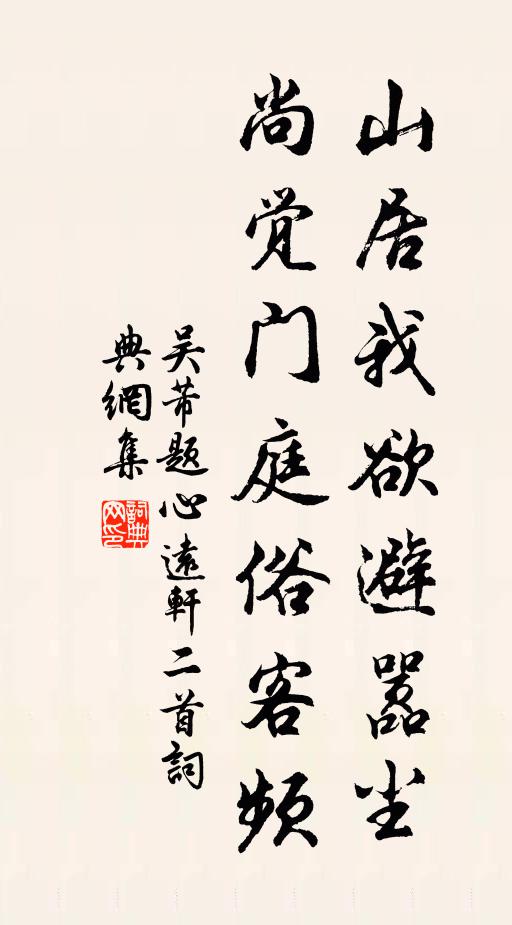 山居我欲避嚣尘
尚觉门庭俗客频
吴芾题心遠軒二首詞
典網集
詞典网印